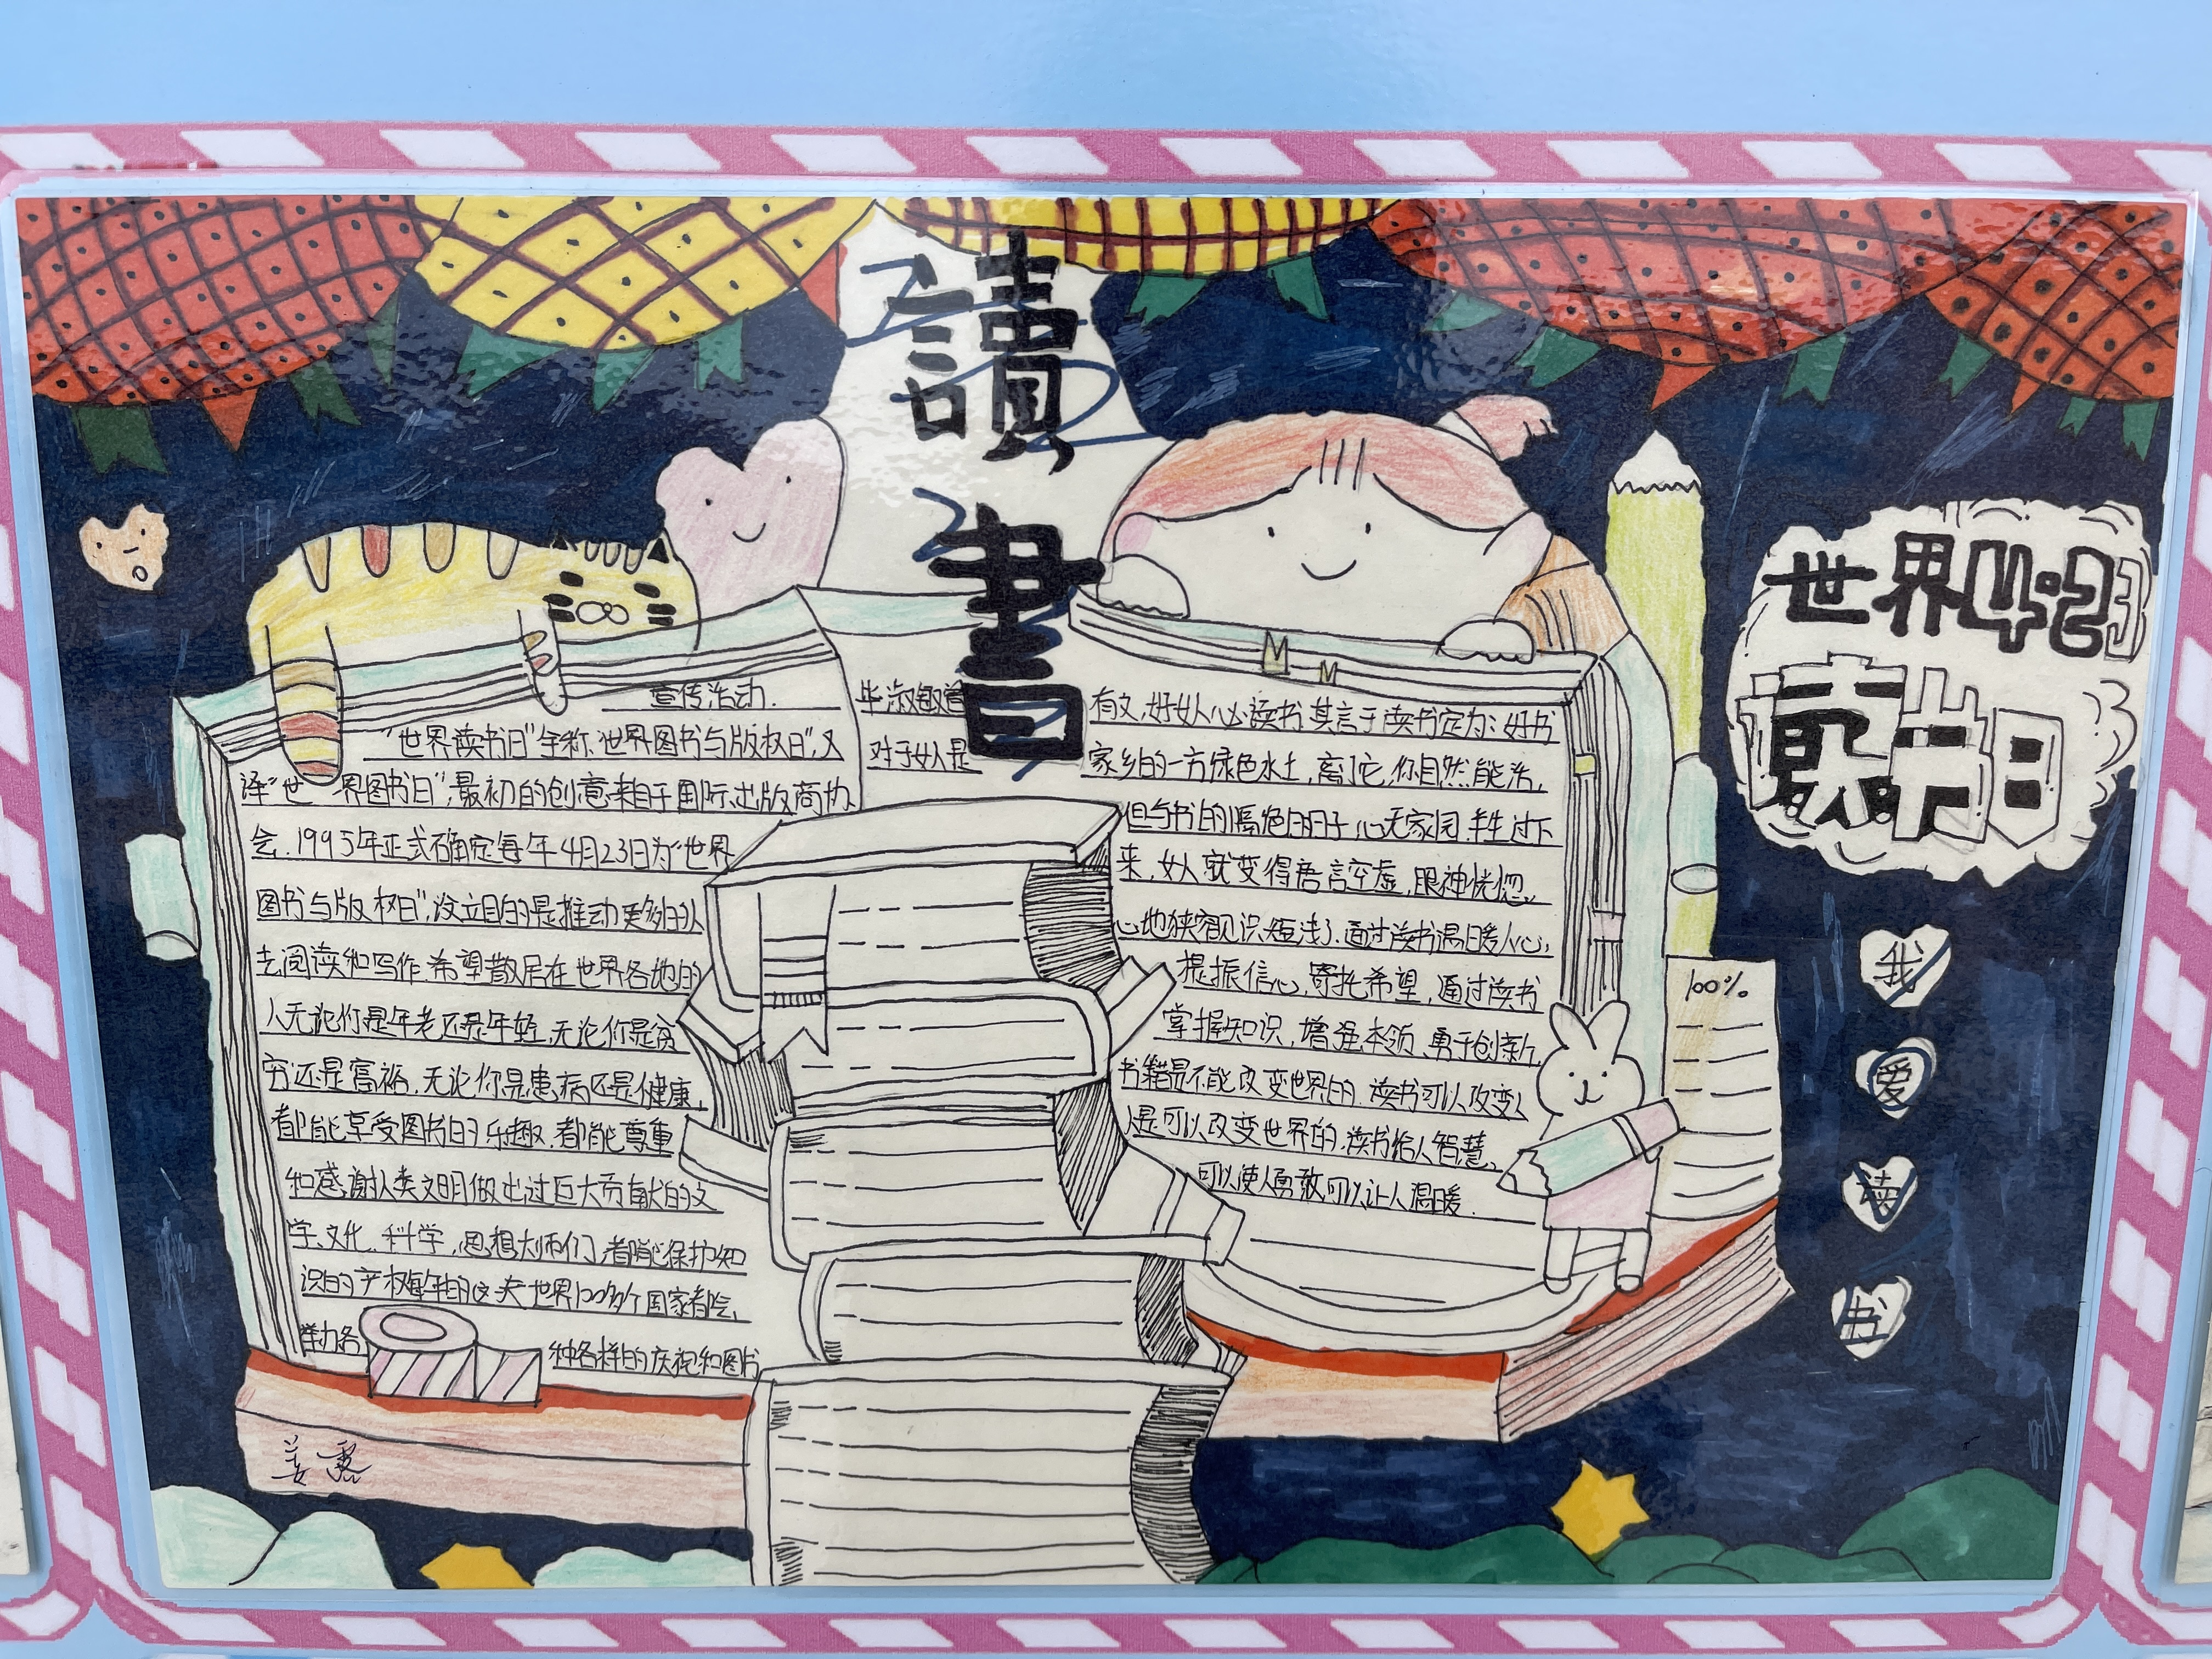 讀書
世界4.23
读书日
我爱读书
宣传活动.
"世界读书日"全称"世界图书与版权日",又
译"世界图书日",最初的创意来自于国际出版商协
会.1995年正式确定每年4月23日为"世界
图书与版权日",设立目的是推动更多的人
去阅读和写作.希望散居在世界各地的
人无论你是年老还是年轻,无论你是贫
穷还是富裕.无论你是患病还是健康,
都能享受图书的乐趣.都能尊重
和感谢人类文明做出过巨大贡献的文
学、文化.科学,思想大师们,都能保护知
识的产权每年的这天世界100多个国家都会
举力各种各样的庆祝和图书
毕淑敏曾有文,好女人必读书.其言于读书定为:好书
对于女人是家乡的一方绿色水土,离了它,你自然能活,
但与书的隔绝的日子,心无家园.半生过下
来,女人就变得语言空虚,眼神恍惚,
心地狭窄见识短浅了.通过读书温暖人心,
提振信心,寄托希望,通过读书
掌握知识,增强本领,勇于创新,
书籍是不能改变世界的.读书可以改变人
人是可以改变世界的.读书给人智慧,
可以使人勇敢可以让人温暖.
100%
姜